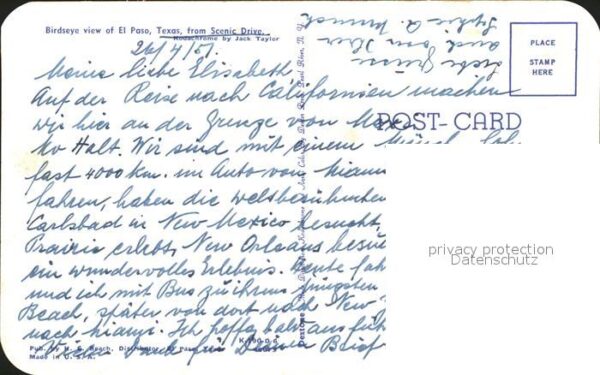 Birdseye view of El Paso, Texas, from Scenic Drive.
Kodachrome by Jack Taylor
PLACE
STAMP
HERE
POST-CARD
26/4/51.
Meine liebe Elisabeth
Auf der Reise nach Californien machen
wir hier an der Grenze von Mex
ko Halt. Wir sind mit einem
fast 4000 km. im Auto von Miam
fahren, haben die weltberühmten
Carlsbad in New Mexico besucht,
Prairie erlebt, New Orleans besuc
ein wundervolles Erlebnis. Heute fah
und ich mit Bus zu ihrem jüngsten
Beach, später von dort nach New
nach Miami. Ich hoffe, bald ausführ
Vielen Dank für Deinen Brief
Liebe Grüsse
auch von Ihrer
Sophie A.
privacy protection
Datenschutz
Pub. by
Made in U.S.A.